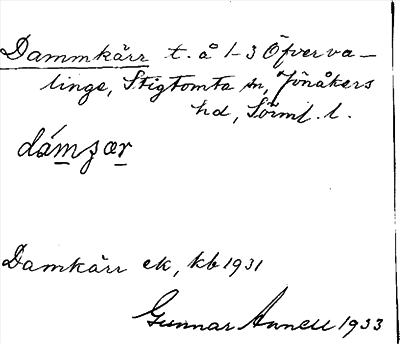 Dammkärr t. å 1-3 Öfverva-
linge, Stigtomta sn, Jönåkers
hd, Sörml. l.
dámꞩær
Damkärr ek, kb 1931
Gunnar Annell 1933